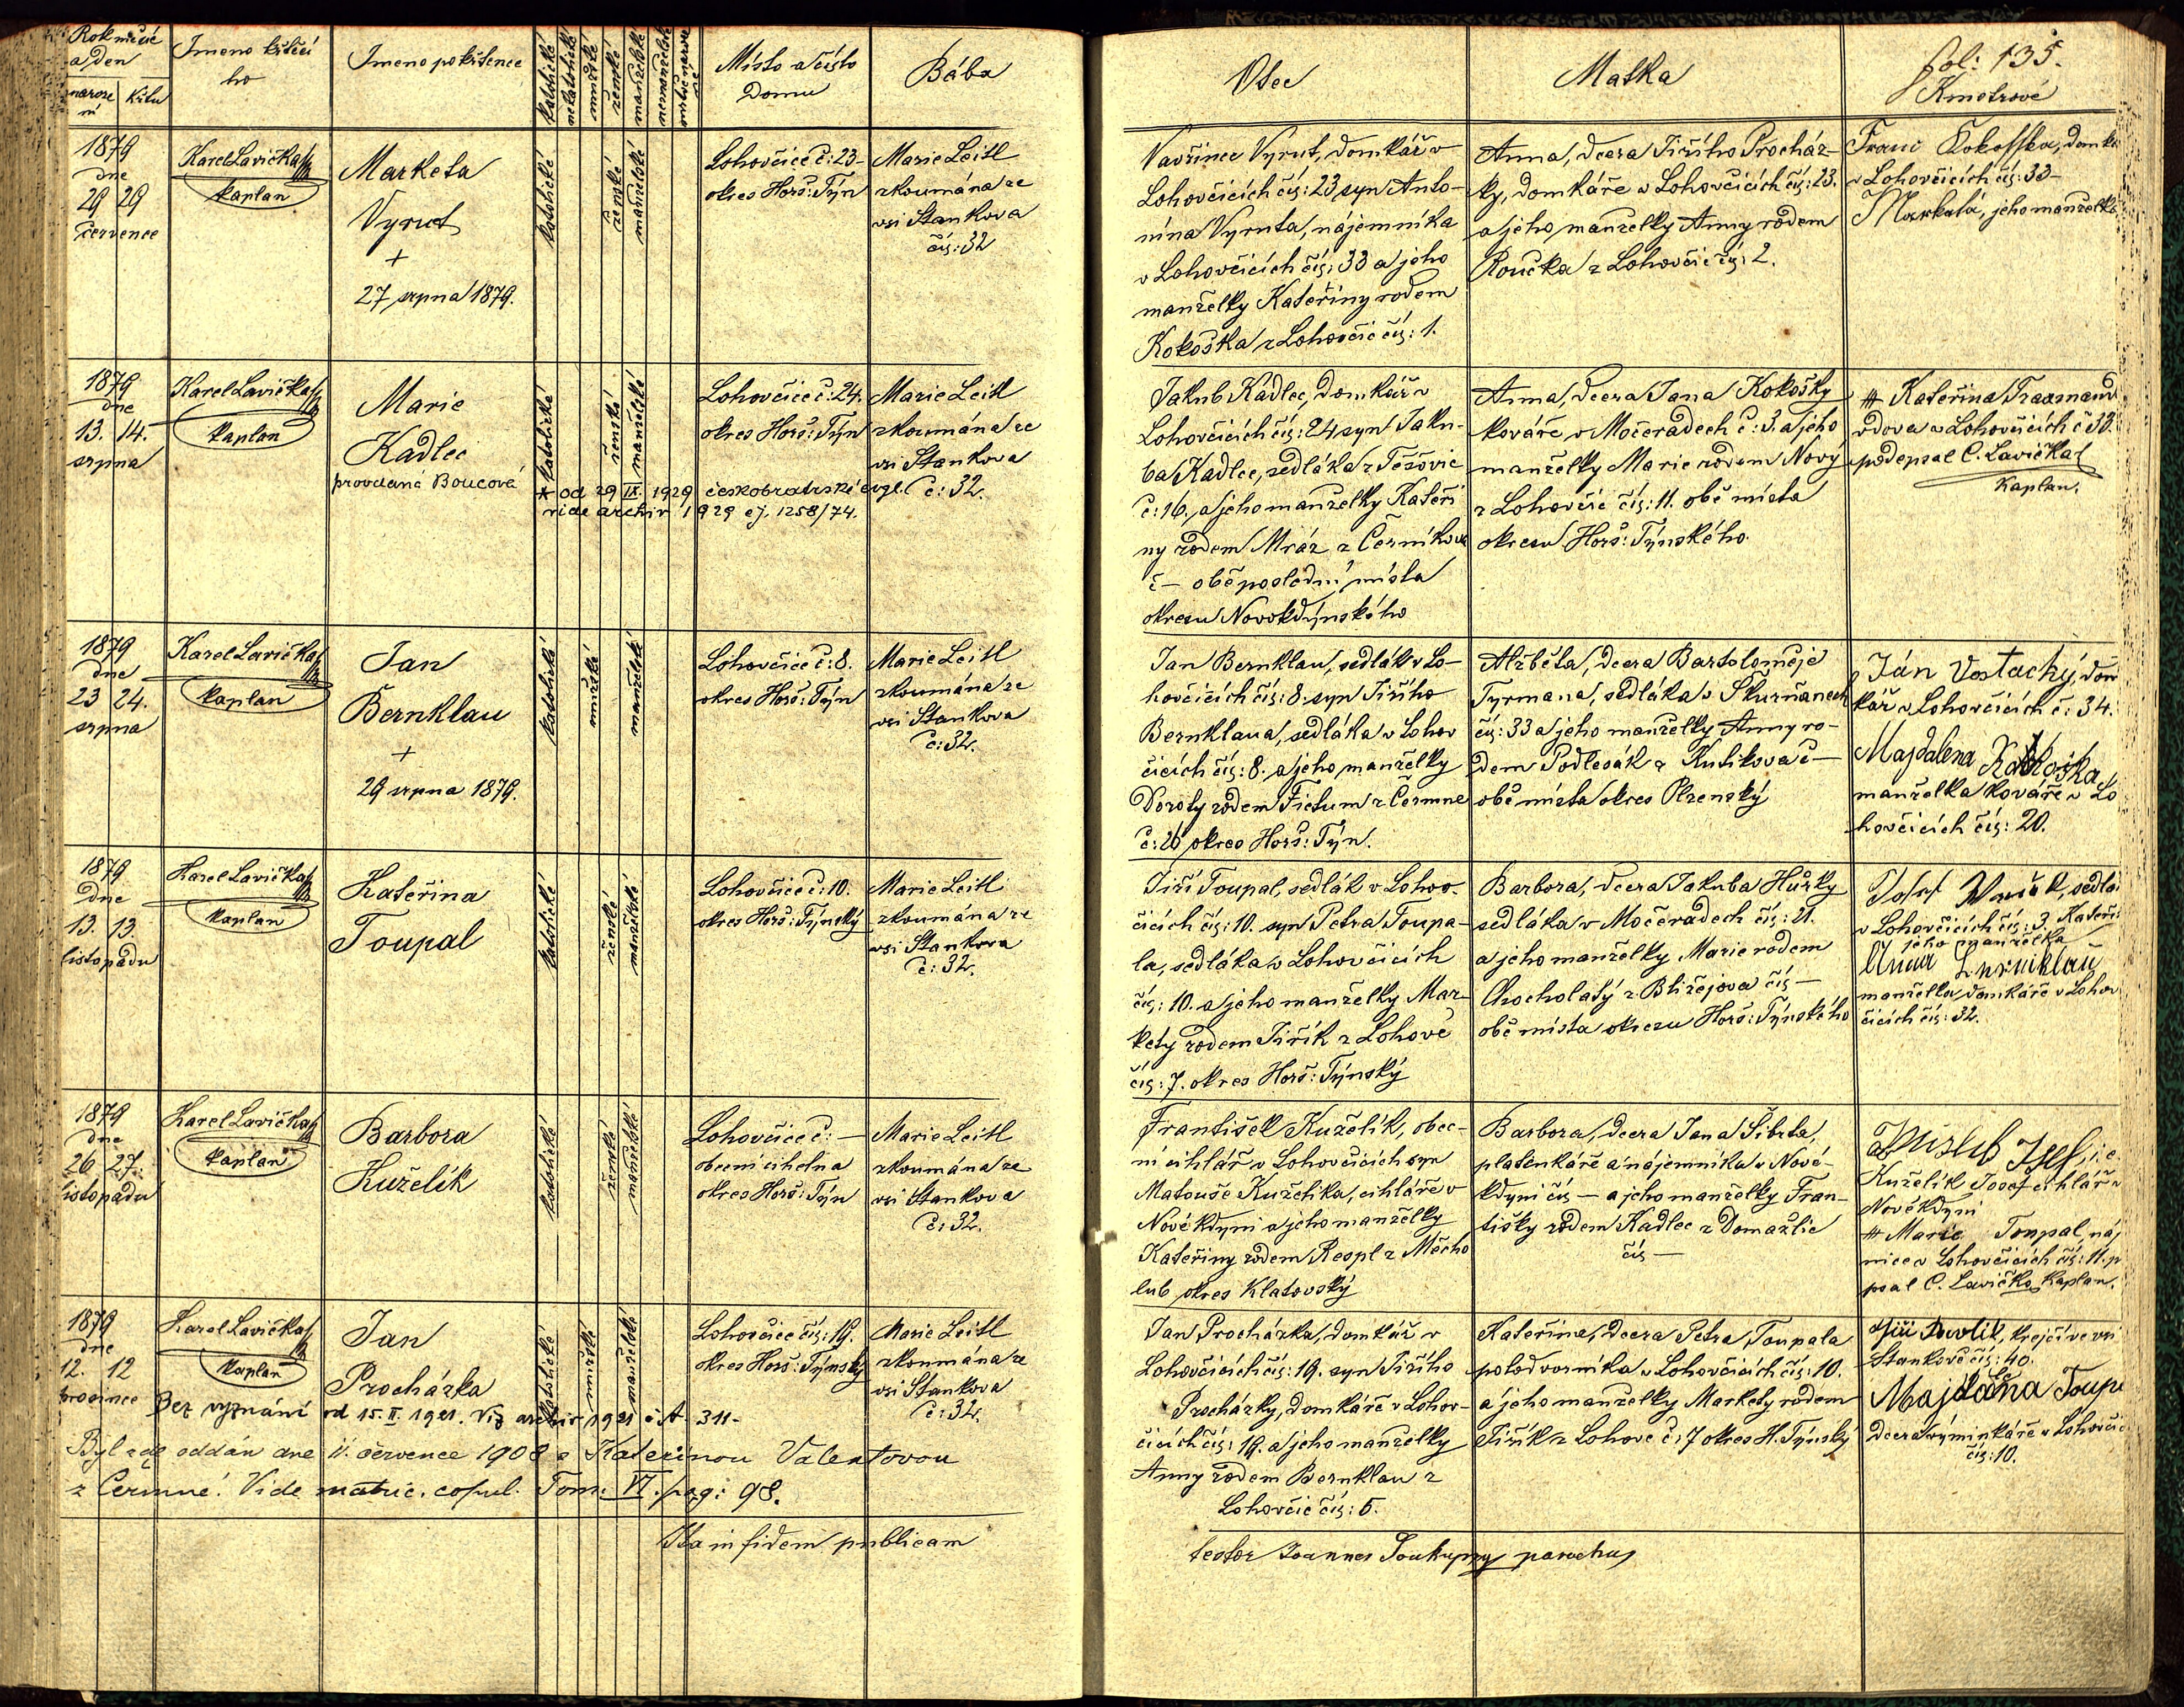 Rok měsíc
a den
narození
křtu
Jméno křtícího
Jméno pokřtěnce
katolické
nekatolické
mužské
ženské
manželské
nemanželské
Místo a číslo
Domu
Bába
1879
dne
29 29
července
Karel Lavička
kaplan
Marketa
Vyrut
+
27 srpna 1879.
katolické
ženské
manželské
Lohovčice č: 23-
okres Horš: Týn
Marie Leitl
zkoumána ze
vsi Stankova
čís: 32
1879
dne
13. 14.
srpna
Karel Lavička
kaplan
Marie
Kadlec
provdaná Boucová
* katolické
ženské
manželské
Lohovčice č: 24.
okres Horš: Týn
Marie Leitl
zkoumána ze
vsi Stankova
č: 32.
* od 29 IX. 1929 českobratrské evgl.
vide archiv 1929 čj. 1258/74.
1879
dne
23 24.
srpna
Karel Lavička
kaplan
Jan
Bernklau
+
29 srpna 1879.
katolické
mužské
manželské
Lohovčice č: 8.
okres Horš: Týn
Marie Leitl
zkoumána ze
vsi Stankova
č: 32.
1879
Dne
13. 13.
listopadu
Karel Lavička
kaplan
Kateřina
Toupal
katolické
ženské
manželské
Lohovčice č: 10.
okres Horš: Týnský
Marie Leitl
zkoumána ze
vsi Stankova
č: 32.
1879
dne
26 27.
listopadu
Karel Lavička
kaplan
Barbora
Kuželík
katolické
ženské
manželské
Lohovčice č: —
obecní cihelna
okres Horš: Týn
Marie Leitl
zkoumána ze
vsi Stankova
č: 32.
1879
dne
12. 12
prosince
Karel Lavička
kaplan
Jan
Procházka
katolické
mužské
manželské
Lohovčice čís: 19.
okres Horš: Týnský
Marie Leitl
zkoumána ze
vsi Stankova
č: 32.
Bez vyznání od 15. II. 1921. Viz archiv 1921 311-
Byl zde oddán dne 11. července 1908 s Kateřinou Valentovou
z Čermné. Vide matric. copul. Tom: VI. pag: 98.
Ita in fidem publicam
Otec
Matka
fol: 135.
Kmotrové
Vavřinec Vyrut, domkář v
Lohovčicích čís: 23 syn Anto-
nína Vyruta, nájemníka
v Lohovčicích čís: 33 a jeho
manželky Kateřiny rodem
Kokoška z Lohovčic čís: 1.
Anna, dcera Jiřího Procház-
ky, domkáře v Lohovčicích čís: 23.
a jeho manželky Anny rodem
Roučka z Lohovčic čís: 2.
Franc Kokoschka, domk
v Lohovčicích čís: 33-
Markéta, jeho manželka
Jakub Kadlec, domkář v
Lohovčicích čís: 24 syn Jaku-
ba Kadlec, sedláka z Těšovic
č: 16. a jeho manželky Kateři
ny rodem Mráz z Černíkova
č— obě poslední místa
okresu Novokdýnského
Anna, dcera Jana Kokošky
kováře, v Močeradech č: 3. a jeho
manželky Marie rodem Nový
z Lohovčic čís: 11. obě místa
okresu Horš: Týnského
Kateřina
vdova v Lohovčicích č 33.
podepsal C. Lavička
kaplan.
Jan Bernklau, sedlák v Lo-
hovčicích čís: 8. syn Jiřího
Bernklaua, sedláka v Lohov
čicích čís: 8. a jeho manželky
Doroty rodem Fictum z Čermne
č: 26 okres Horš: Týn.
Alžběta, dcera Bartoloměje
Tyrmana, sedláka v Škurňanech
čís: 33 a jeho manželky Anny ro-
dem Podlesák z Kutikova č—
obě místa okres Plzenský
Ján Vostachý, dom
kář v Lohovčicích č: 34.
Majdalena Kokoška
manželka kováře v Lo
hovčicích čís: 20.
Jiří Toupal, sedlák v Lohov-
čicích čís: 10. syn Petra Toupa-
la, sedláka v Lohovčicích
čís: 10. a jeho manželky Mar-
kety rodem Jiřík z Lohové
čís: 7. okres Horš: Týnský
Barbora, dcera Jakuba Hůrky
sedláka v Močeradech čís: 21.
a jeho manželky Marie rodem
Chocholatý z Bližejova čís —
obě místa okresu Horš: Týnského
sedlá
v Lohovčicích čís: 3. Kateři
jeho manželka
Anna Bernklau
manželka domkáře v Lohov
čicích čís: 32.
František Kuželík, obec-
ní cihlář v Lohovčicích syn
Matouše Kuželíka, cihláře v
Nové kdyni a jeho manželky
Kateřiny rodem Respl z Měcho
lub okres Klatovský
Barbora, dcera Jana Šibrta,
platenkáře a nájemníka v Nové-
kdyni čís — a jeho manželky Fran-
tišky rodem Kadlec z Domažlic
čís —
i. e.
Kuželík Josef cihlář v
Nové kdyni
Marie Toupal, náj
mice v Lohovčicích čís: 11. p
psal C. Lavička kaplan.
Jan Procházka, domkář v
Lohovčicích čís: 19. syn Jiřího
Procházky, domkáře v Lohov-
čicích čís: 19. a jeho manželky
Anny rodem Bernklau z
Lohovčic čís: 5.
Kateřina, dcera Petra Toupala
polodvorníka v Lohovčicích čís: 10.
a jeho manželky Markety rodem
Jiřík z Lohové č: 7 okres H. Týnský
Jiří Pavlik, krejčí ve vsi
Stankově čís: 40.
Majdaña Toupa
dcera výminkáře v Lohovčic
čís: 10.
testor Joannes Soukupp parochus